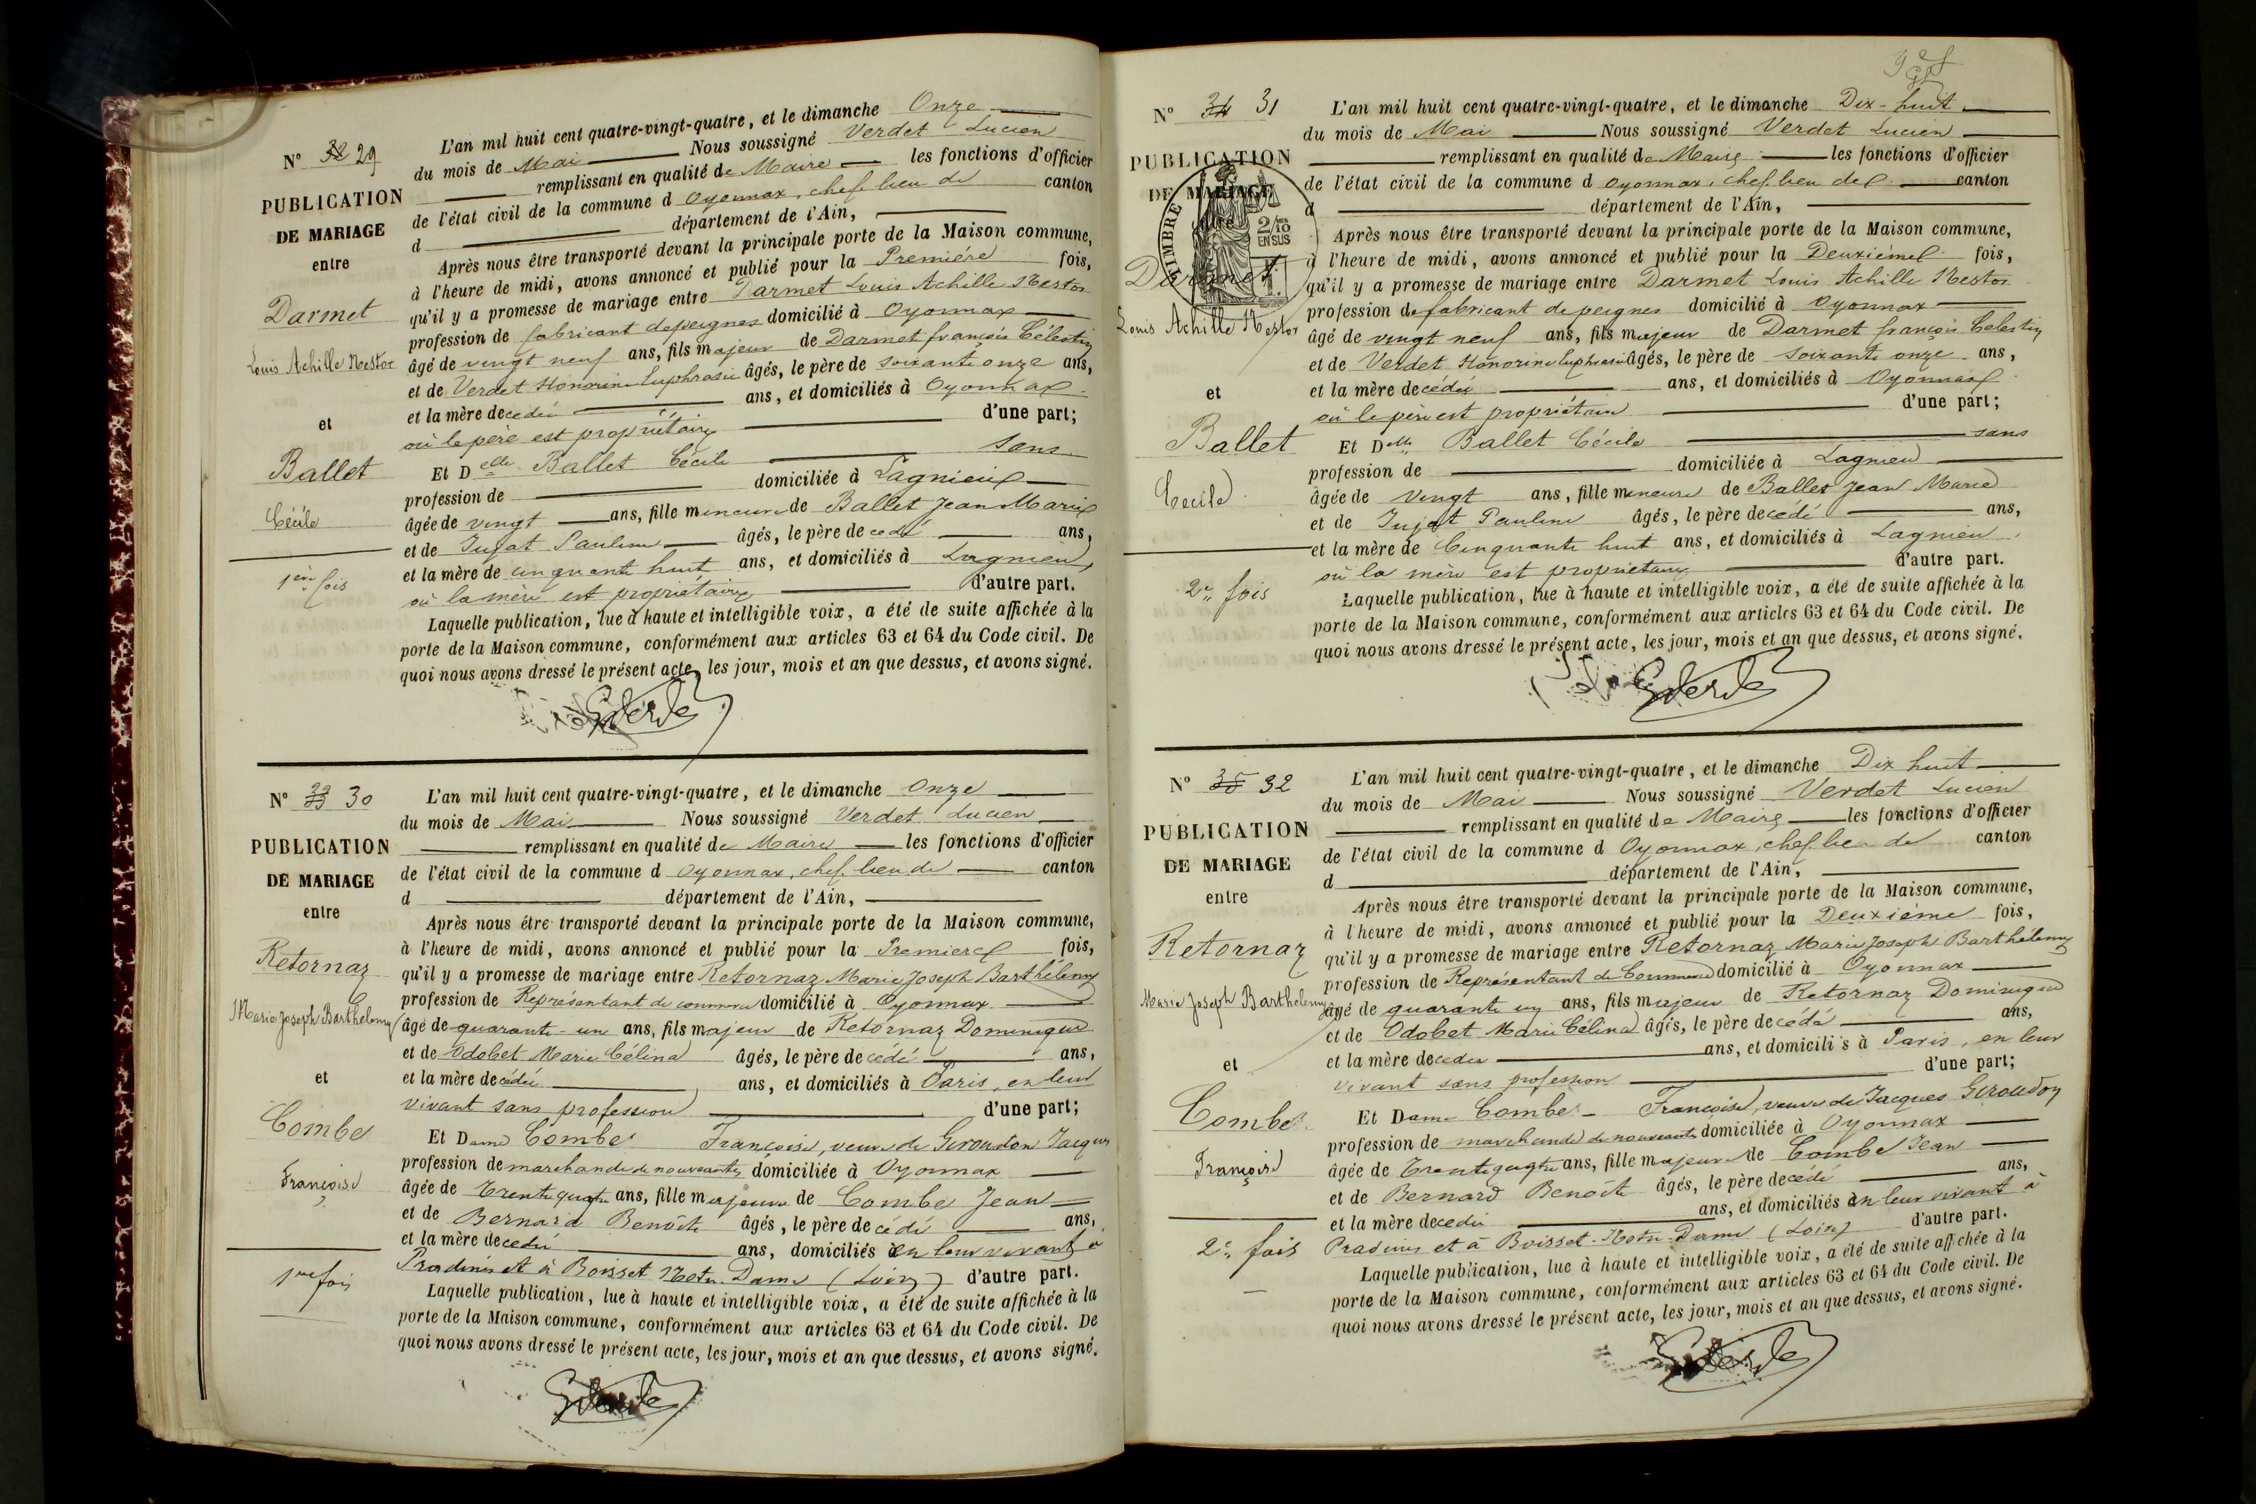 N° 32 29
PUBLICATION
DE MARIAGE
entre
Darmet
Louis Achille Nestor
et
Ballet
Cécile
1ère fois
L'an mil huit cent quatre-vingt-quatre, et le dimanche Onze
du mois de Mai Nous soussigné Verdet Lucien
remplissant en qualité de Maire les fonctions d'officier
de l'état civil de la commune d Oyonnax, chef lieu de canton
d département de l'Ain,
Après nous être transporté devant la principale porte de la Maison commune,
à l'heure de midi, avons annoncé et publié pour la Première fois,
qu'il y a promesse de mariage entre Darmet Louis Achille Nestor
profession de fabricant de peignes domicilié à Oyonnax
âgé de vingt neuf ans, fils majeur de Darmet françois Célestin
et de Verdet Honorine Euphrasie âgés, le père de soixante onze ans,
et la mère decédée ans, et domiciliés à Oyonnax
où le père est propriétaire d'une part;
Et Delle Ballet Cécile sans
profession de domiciliée à Lagnieu
âgée de vingt ans, fille mineure de Ballet Jean Marie
et de Jujat Pauline âgés, le père de cedé ans,
et la mère de cinquante huit ans, et domiciliés à Lagnieu
où la mère est propriétaire d'autre part.
Laquelle publication, lue à haute et intelligible voix, a été de suite affichée à la
porte de la Maison commune, conformément aux articles 63 et 64 du Code civil. De
quoi nous avons dressé le présent acte, les jour, mois et an que dessus, et avons signé.
N° 33 30
PUBLICATION
DE MARIAGE
entre
Retornaz
Marie Joseph Barthelemy
et
Combe
Françoise
1ère fois
L'an mil huit cent quatre-vingt-quatre, et le dimanche Onze
du mois de Mai Nous soussigné Verdet Lucien
remplissant en qualité de Maire les fonctions d'officier
de l'état civil de la commune d Oyonnax, chef lieu de canton
d département de l'Ain,
Après nous être transporté devant la principale porte de la Maison commune,
à l'heure de midi, avons annoncé et publié pour la Première fois,
qu'il y a promesse de mariage entre Retornaz Marie Joseph Barthélemy
profession de Représentant de commerce domicilié à Oyonnax
âgé de quarante-un ans, fils majeur de Retornaz Dominique
et de Odobet Marie Célina âgés, le père decédé ans,
et la mère decédée ans, et domiciliés à Paris, en leur
vivant sans profession d'une part;
Et Dame Combe Françoise, veuve de Giroudon Jacques
profession de marchande de nouveautés domiciliée à Oyonnax
âgée de Trente quatre ans, fille majeure de Combe Jean
et de Bernard Benoîte âgés, le père de cédé ans,
et la mère decedée ans, domiciliés à en leur vivant à
Pradines et à Boisset Notre-Dame (Loire) d'autre part.
Laquelle publication, lue à haute et intelligible voix, a été de suite affichée à la
porte de la Maison commune, conformément aux articles 63 et 64 du Code civil. De
quoi nous avons dressé le présent acte, les jour, mois et an que dessus, et avons signé.
N° 34 31
PUBLICATION
DE MARIAGE
entre
TIMBRE
2/10
EN SUS
Darmet
Louis Achille Nestor
et
Ballet
Cécile
2e fois
L'an mil huit cent quatre-vingt-quatre, et le dimanche Dix-huit
du mois de Mai Nous soussigné Verdet Lucien
remplissant en qualité de Maire les fonctions d'officier
de l'état civil de la commune d Oyonnax, chef lieu de canton
d département de l'Ain,
Après nous être transporté devant la principale porte de la Maison commune,
à l'heure de midi, avons annoncé et publié pour la Deuxième fois,
qu'il y a promesse de mariage entre Darmet Louis Achille Nestor
profession de fabricant de peignes domicilié à Oyonnax
âgé de vingt neuf ans, fils majeur de Darmet françois Celestin
et de Verdet Honorine Euphrasie âgés, le père de soixante onze ans,
et la mère decédée ans, et domiciliés à Oyonnax
où le père est propriétaire d'une part;
Et Delle Ballet Cécile sans
profession de domiciliée à Lagnieu
âgée de Vingt ans, fille mineure de Ballet Jean Marie
et de Jujat Pauline âgés, le père decédé ans,
et la mère de Cinquante huit ans, et domiciliés à Lagnieu
où la mère est propriétaire d'autre part.
Laquelle publication, lue à haute et intelligible voix, a été de suite affichée à la
porte de la Maison commune, conformément aux articles 63 et 64 du Code civil. De
quoi nous avons dressé le présent acte, les jour, mois et an que dessus, et avons signé.
N° 35 32
PUBLICATION
DE MARIAGE
entre
Retornaz
Marie Joseph Barthelemy
et
Combe
Françoise
2e fois
L'an mil huit cent quatre-vingt-quatre, et le dimanche Dix huit
du mois de Mai Nous soussigné Verdet Lucien
remplissant en qualité de Maire les fonctions d'officier
de l'état civil de la commune d Oyonnax, chef lieu de canton
d département de l'Ain,
Après nous être transporté devant la principale porte de la Maison commune,
à l'heure de midi, avons annoncé et publié pour la Deuxième fois,
qu'il y a promesse de mariage entre Retornaz Marie Joseph Barthélemy
profession de Représentant de Commerce domicilié à Oyonnax
âgé de quarante un ans, fils majeur de Retornaz Dominique
et de Odobet Marie Célina âgés, le père decédé ans,
et la mère decedée ans, et domiciliés à Paris, en leur
vivant sans profession d'une part;
Et Dame Combe Françoise, veuve de Jacques Giroudon
profession de marchande de nouveautés domiciliée à Oyonnax
âgée de Trente quatre ans, fille majeure de Combe Jean
et de Bernard Benoîte âgés, le père decédé ans,
et la mère decedée ans, et domiciliés en leur vivant à
Pradines et à Boisset-Notre-Dame (Loire) d'autre part.
Laquelle publication, lue à haute et intelligible voix, a été de suite affichée à la
porte de la Maison commune, conformément aux articles 63 et 64 du Code civil. De
quoi nous avons dressé le présent acte, les jour, mois et an que dessus, et avons signé.